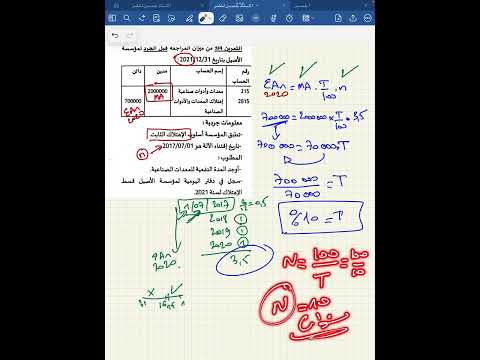 التمرين 04: من ميزان المراجعة قبل الجرد لمؤسسة
الأصيل بتاريخ 2021/12/31:
رقم الحساب
إسم الحساب
مدين
دائن
215
معدات وأدوات صناعية
2000000
MA
2815
إهتلاك المعدات والأدوات الصناعية
700000
ΣAn
2020
معلومات جردية:
-تطبق المؤسسة أسلوب الإهتلاك الثابت.
-تاريخ إقتناء الآلة هو 2017/07/01
n
المطلوب:
-أوجد المدة النفعية للمعدات الصناعية.
-سجل في دفتر اليومية لمؤسسة الأصيل قسط
الإهتلاك لسنة 2021.
1/07/2017
6/12=0,5
2018 1
2019 1
2020 1
3,5
ΣAn
2020
ΣAn = MA . T/100 . n
2020
700000 = 2000000 × T/100 . 3,5
700 000 = 70000.T
700 000/70000 = T
%10 = T
N = 100/T = 100/10
N = 10
سنوات